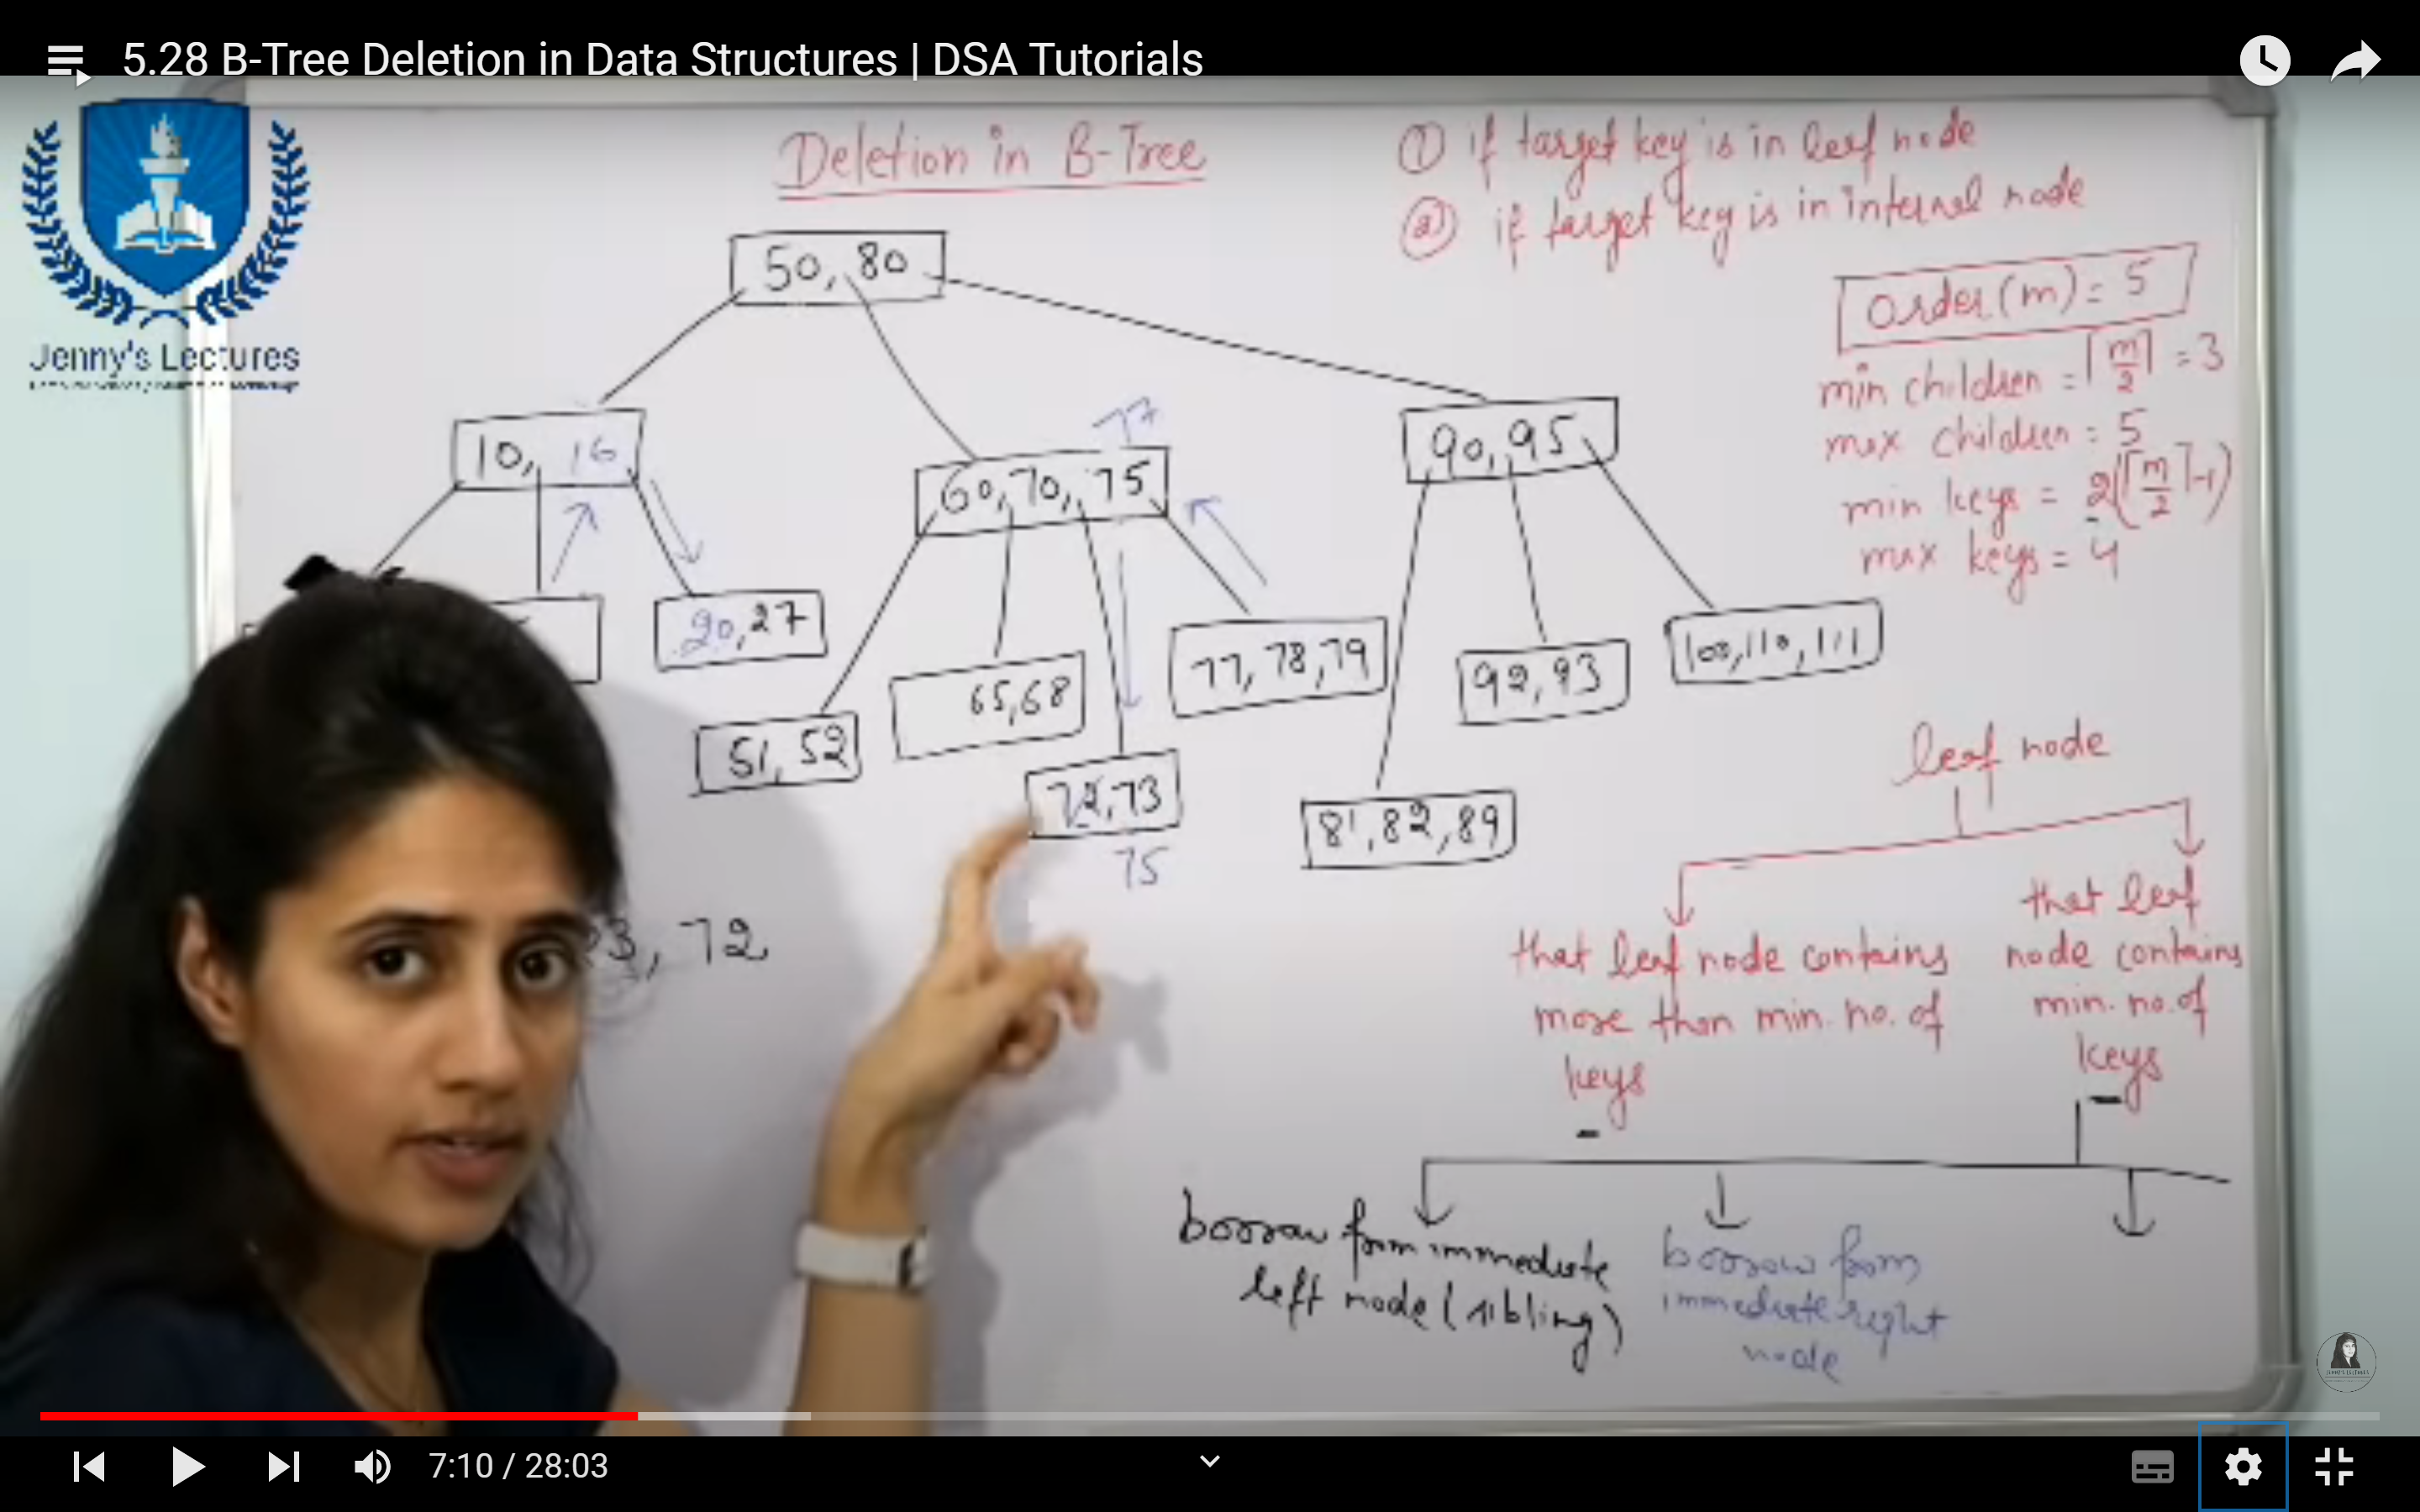 5.28 B-Tree Deletion in Data Structures | DSA Tutorials
Jenny's Lectures
Deletion in B-Tree
① if target key is in leaf node
② if target key is in internal node
Order(m) = 5
min children = ⌈m/2⌉ = 3
max children = 5
min keys = 2(⌈m/2⌉-1)
max keys = 4
50, 80
10, 16
77
60, 70, 75
90, 95
20, 27
51, 52
65, 68
72, 73
75
77, 78, 79
81, 82, 89
92, 93
100, 110, 111
3, 72
leaf node
that leaf node contains
more than min. no. of
keys
that leaf
node contains
min. no. of
keys
borrow from immediate
left node (sibling)
borrow from
immediate right
node
7:10 / 28:03